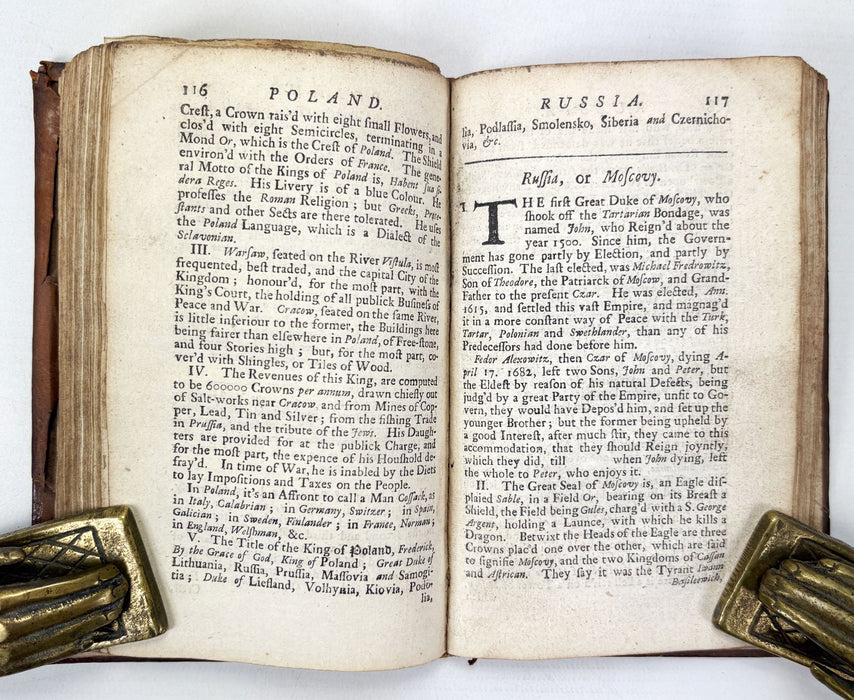 116 POLAND.
Crest, a Crown rais'd with eight small Flowers, and
clos'd with eight Semicircles, terminating in a
Mond Or, which is the Crest of Poland. The Shield
environ'd with the Orders of France. The gene-
ral Motto of the Kings of Poland is, Habent sua si-
dera Reges. His Livery is of a blue Colour. He
professes the Roman Religion; but Greeks, Prote-
stants and other Sects are there tolerated. He uses
the Poland Language, which is a Dialect of the
Sclavonian.
III. Warsaw, seated on the River Vistula, is most
frequented, best traded, and the capital City of the
Kingdom; honour'd, for the most part, with the
King's Court, the holding of all publick Business of
Peace and War. Cracow, seated on the same River,
is little inferiour to the former, the Buildings here
being fairer than elsewhere in Poland, of Free-stone,
and four Stories high; but, for the most part, co-
ver'd with Shingles, or Tiles of Wood.
IV. The Revenues of this King, are computed
to be 600000 Crowns per annum, drawn chiefly out
of Salt-works near Cracow and from Mines of Cop-
per, Lead, Tin and Silver; from the fishing Trade
in Prussia, and the tribute of the Jews. His Daugh-
ters are provided for at the publick Charge, and
for the most part, the expence of his Houshold de-
fray'd. In time of War, he is inabled by the Diets
to lay Impositions and Taxes on the People.
In Poland, it's an Affront to call a Man Cossack, as
in Italy, Calabrian; in Germany, Switzer; in Spain,
Galician; in Sweden, Finlander; in France, Norman;
in England, Welshman, &c.
V. The Title of the King of Poland, Frederick,
By the Grace of God, King of Poland; Great Duke of
Lithuania, Russia, Prussia, Massovia and Samogi-
tia; Duke of Liefland, Volhynia, Kiovia, Podo-
lia,
RUSSIA. 117
lia, Podlassia, Smolensko, Siberia and Czernicho-
via, &c.
Russia, or Moscovy.
I. THE first Great Duke of Moscovy, who
shook off the Tartarian Bondage, was
named John, who Reign'd about the
year 1500. Since him, the Govern-
ment has gone partly by Election, and partly by
Succession. The last elected, was Michael Fredrowitz,
Son of Theodore, the Patriarck of Moscow, and Grand-
Father to the present Czar. He was elected, Ann.
1615, and settled this vast Empire, and manag'd
it in a more constant way of Peace with the Turk,
Tartar, Polonian and Swethlander, than any of his
Predecessors had done before him.
Fedor Alexowitz, then Czar of Moscovy, dying A-
pril 17. 1682, left two Sons, John and Peter, but
the Eldest by reason of his natural Defects, being
judg'd by a great Party of the Empire, unfit to Go-
vern, they would have Depos'd him, and set up the
younger Brother; but the former being upheld by
a good Interest, after much stir, they came to this
accommodation, that they should Reign joyntly,
which they did, till when John dying, left
the whole to Peter, who enjoys it.
II. The Great Seal of Moscovy is, an Eagle dis-
plaied Sable, in a Field Or, bearing on its Breast a
Shield, the Field being Gules, charg'd with a S. George
Argent, holding a Launce, with which he kills a
Dragon. Betwixt the Heads of the Eagle are three
Crowns plac'd one over the other, which are said
to signifie Moscovy, and the two Kingdoms of Cassan
and Astrican. They say it was the Tyrant Iwann
Basileewich,